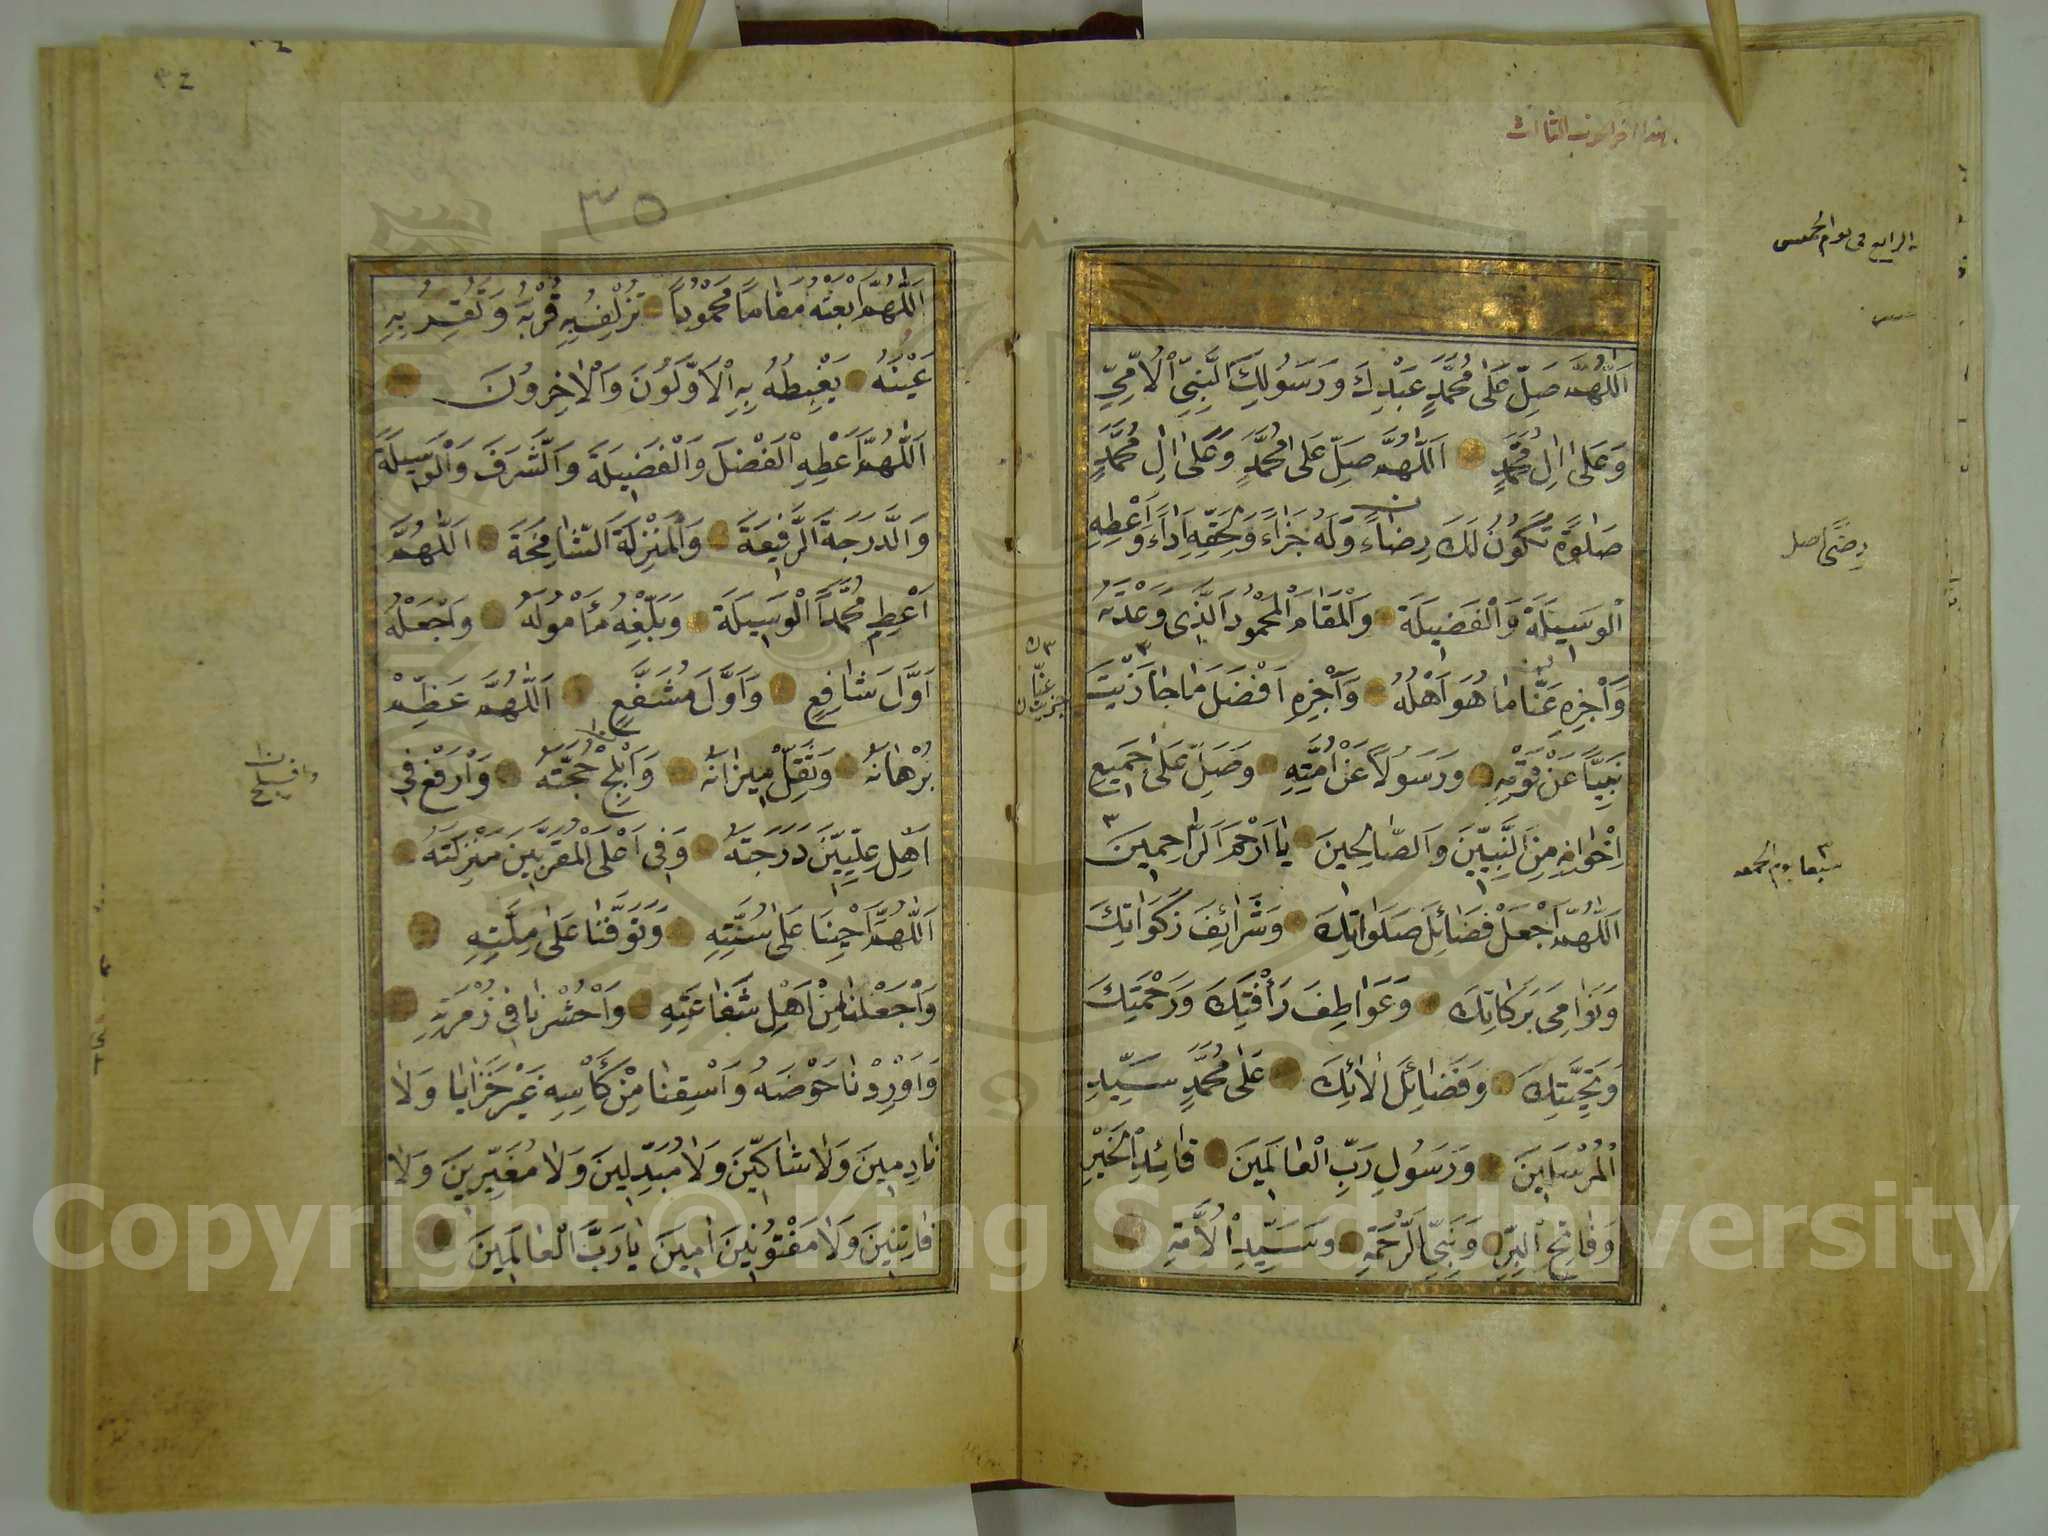 هذا اخر الحزب الثالث
الرابع في يوم الخميس
اَللّٰهُمَّ صَلِّ عَلٰى مُحَمَّدٍ عَبْدِكَ وَرَسُولِكَ النَّبِيِّ الْاُمِّيِّ
وَعَلٰى اٰلِ مُحَمَّدٍ اَللّٰهُمَّ صَلِّ عَلٰى مُحَمَّدٍ وَعَلٰى اٰلِ مُحَمَّدٍ
صَلٰوةً تَكُونُ لَكَ رِضَاءً وَلَهُ جَزَاءً وَلِحَقِّهِ اَدَاءً وَاَعْطِهِ
رضًى اصل
الْوَسِيلَةَ وَالْفَضِيلَةَ وَالْمَقَامَ الْمَحْمُودَ الَّذِى وَعَدْتَهُ
وَاجْزِهِ عَنَّا مَا هُوَ اَهْلُهُ وَاَجْزِهِ اَفْضَلَ مَا جَازَيْتَ
نَبِيًّا عَنْ قَوْمِهِ وَرَسُولًا عَنْ اُمَّتِهِ وَصَلِّ عَلٰى جَمِيعِ
اِخْوَانِهِ مِنَ النَّبِيِّينَ وَالصَّالِحِينَ يَا اَرْحَمَ الرَّاحِمِينَ
سبعا يوم الجمعه
اَللّٰهُمَّ اجْعَلْ فَضَائِلَ صَلَوَاتِكَ وَشَرَائِفَ زَكَوَاتِكَ
وَنَوَامِىَ بَرَكَاتِكَ وَعَوَاطِفَ رَأْفَتِكَ وَرَحْمَتِكَ
وَتَحِيَّتِكَ وَفَضَائِلَ اٰلَائِكَ عَلٰى مُحَمَّدٍ سَيِّدِ
الْمُرْسَلِينَ وَرَسُولِ رَبِّ الْعَالَمِينَ قَائِدِ الْخَيْرِ
وَفَاتِحِ الْبِرِّ وَنَبِيِّ الرَّحْمَةِ وَسَيِّدِ الْاُمَّةِ
٣٤
٣٥
اَللّٰهُمَّ ابْعَثْهُ مَقَامًا مَحْمُودًا تُزْلِفُ بِهِ قُرْبَهُ وَتُقِرُّ بِهِ
عَيْنَهُ يَغْبِطُهُ بِهِ الْاَوَّلُونَ وَالْاٰخِرُونَ
اَللّٰهُمَّ اَعْطِهِ الْفَضْلَ وَالْفَضِيلَةَ وَالشَّرَفَ وَالْوَسِيلَةَ
وَالدَّرَجَةَ الرَّفِيعَةَ وَالْمَنْزِلَةَ الشَّامِخَةَ اَللّٰهُمَّ
اَعْطِ مُحَمَّدًا الْوَسِيلَةَ وَبَلِّغْهُ مَأْمُولَهُ وَاجْعَلْهُ
اَوَّلَ شَافِعٍ وَاَوَّلَ مُشَفَّعٍ اَللّٰهُمَّ عَظِّمْ
بُرْهَانَهُ وَثَقِّلْ مِيزَانَهُ وَاَبْلِجْ حُجَّتَهُ وَارْفَعْ فِى
اَهْلِ عِلِّيِّينَ دَرَجَتَهُ وَفِى اَعْلَى الْمُقَرَّبِينَ مَنْزِلَتَهُ
اَللّٰهُمَّ اَحْيِنَا عَلٰى سُنَّتِهِ وَتَوَفَّنَا عَلٰى مِلَّتِهِ
وَاجْعَلْنَا مِنْ اَهْلِ شَفَاعَتِهِ وَاحْشُرْنَا فِى زُمْرَتِهِ
وَاَوْرِدْنَا حَوْضَهُ وَاسْقِنَا مِنْ كَأْسِهِ غَيْرَ خَزَايَا وَلَا
نَادِمِينَ وَلَا شَاكِّينَ وَلَا مُبَدِّلِينَ وَلَا مُغَيِّرِينَ وَلَا
فَاتِنِينَ وَلَا مَفْتُونِينَ اٰمِينَ يَا رَبَّ الْعَالَمِينَ
Copyright © King Saud University